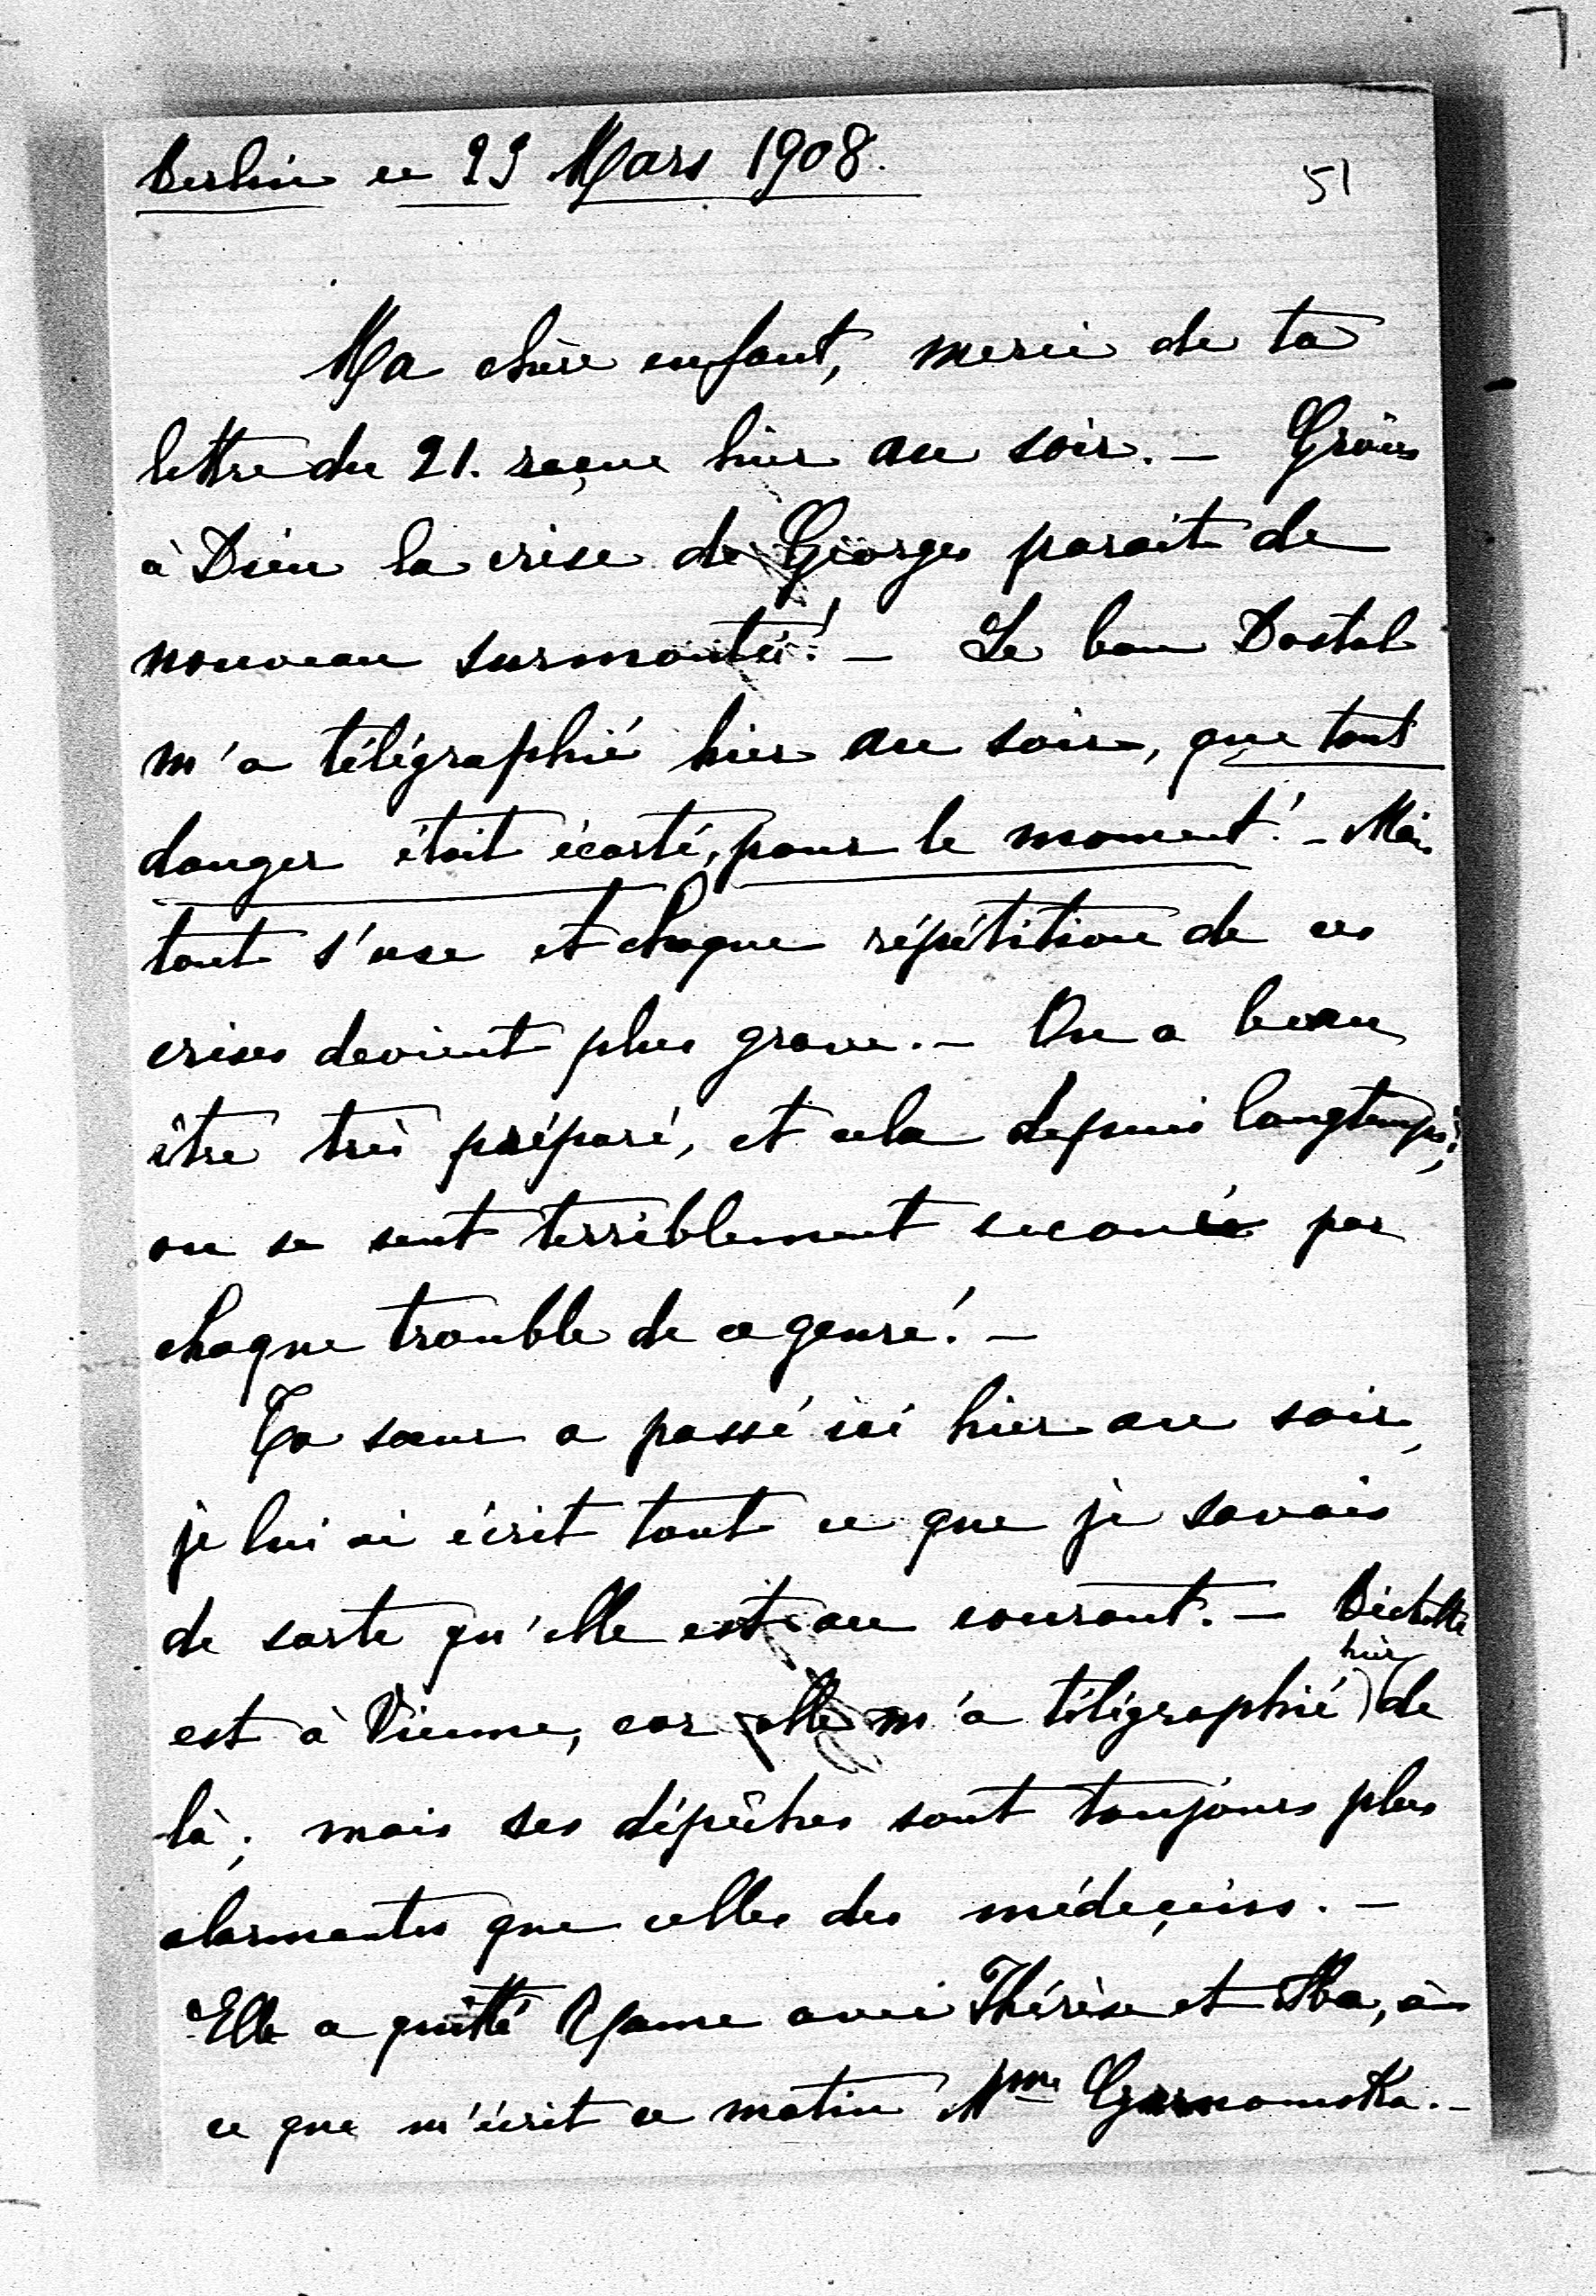 Berlin ce 23 Mars 1908.
51
Ma chère enfant, merci de ta
lettre du 21. reçue hier au soir. — Grâces
à Dieu la crise de Georges parait de
nouveau surmontée! — Le bon Dostal
m'a télégraphié hier au soir, que tout
danger était écarté, pour le moment! — Mais
tout s'use et chaque répétition de ces
crises devient plus grave. — On a beau
être très préparé, et cela depuis longtemps;
on se sent terriblement secoué par
chaque trouble de ce genre! —
Ta sœur a passé ici hier au soir,
je lui ai écrit tout ce que je savais
de sorte qu'elle est au courant. — Bichette
hier
est à Vienne, car elle m'a télégraphié de
là; mais ses dépêches sont toujours plus
alarmantes que celles des médeçins. —
Elle a quitté Rome avec Thérèse et , à
ce que m'écrit ce matin Mme —